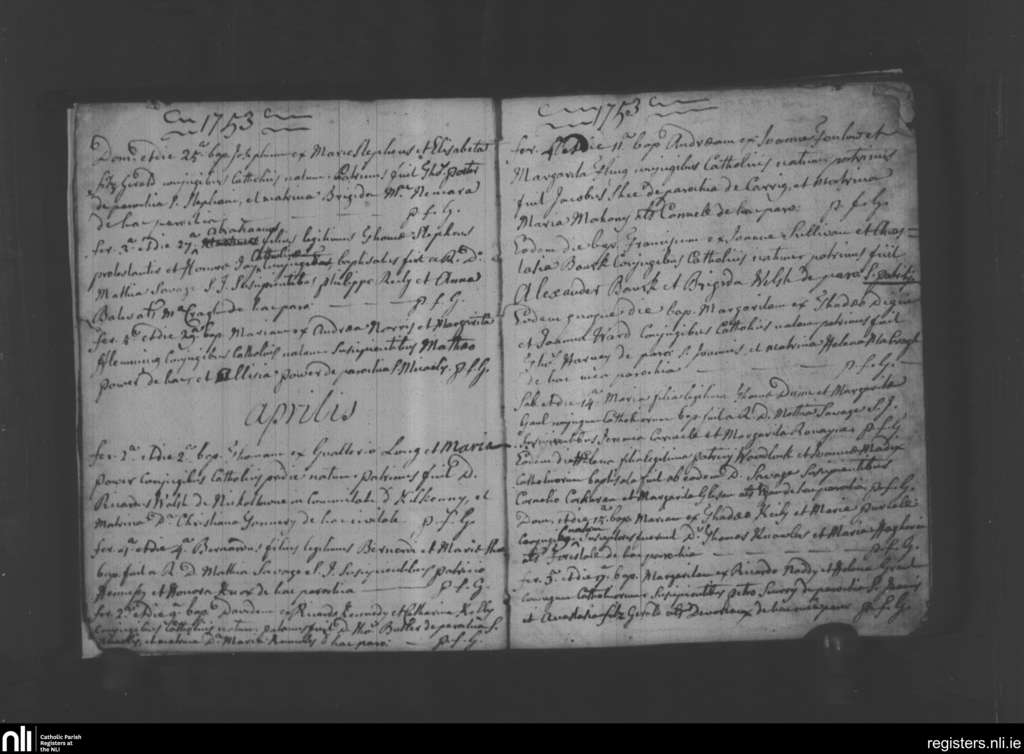 1753
Dom. et die 25ª bap. Josephum ex Marco Stephens et Elisabetha
Fitz Gerald conjugibus Catholicis natum Patrinus fuit Thos.
de parochia S. Stephani, et matrina Brigida McNemara
de hac parochia p.f.G.
Abrahamus
fer. 3ª et die 27ª filius legitimus Thomæ Stephens
protestantis et Honora Catholicæ conjugibus baptisatus fuit a R. D.
Mathia Savage S. J. Susipientibus Philippo Realy et Anna
de hac paro: p.f.G.
fer. et die 29ª bap. Mariam ex Andrea Norris et Margarita
Flemming Conjugibus Catholicis natam Susipientibus Mathæo
Power de hac et Allisia Power de parochia S. Micaelis. p.f.G.
Aprilis
fer. 2ª et die 2ª bap. Thomam ex Gualterio Long et Maria
Power Conjugibus Catholicis pridie natum Patrinus fuit D.
Ricardus Walsh de in Commitatu de Kilkenny, et
Matrina Dª Christiana de hac civitate p.f.G.
fer. et die 4ª Bernardus filius legitimus Bernardi et Mariæ
bap. fuit a R. D. Mathia Savage S. J. Susipientibus Patricio
Hennessy et Honora Knox de hac parochia p.f.G.
fer. 2ª et die 9ª bap. Davidem ex Ricardo Kennedy et Catharina Kelly
Conjugibus Catholicis natum patrinus fuit D. Thos. Butler de parochia S.
et matrina Dª Maria de hac paro: p.f.G.
1753
fer. 4ª et die 11ª bap. Andræam ex Joanne et
Margarita conjugibus Catholicis natum patrinus
fuit Jacobus Shee de parochia de Carrig, et Matrina
Maria Mahony als Connell de hac paro: p.f.G.
Eodem die bap. Franciscum ex Joanne Sullivan et Anas=
tasia Bourk Conjugibus Catholicis natum patrinus fuit
Alexander Bourk et Brigida Welsh de paro: S. Patricij
Eodem quoque die bap. Margaritam ex Thadæo
et Joanna Ward Conjugibus Catholicis natam patrinus fuit
Harney de paro: S. Joannis, et matrina Helena
de hac mea parochia p.f.G.
Sab. et die 14ª Maria filia legitima Thomæ Dunn et Margarita
Gaul conjugum Catholicorum bap. fuit a R. D. Mathia Savage S. J.
Susipientibus Jeremia et Margarita Ronayne p.f.G.
Eodem die Helena filia legitima Patricij Woodlock et Joannæ
Catholicorum baptisata fuit ab eodem D. Savage Susipientibus
Cornelio Corkeran et Margarita Gleson als de hac parochia p.f.G.
Dom. et die 15ª bap. Mariam ex Thadæo Realy et Maria Purcell
natam
Conjugibus Susceptores fuerunt D. Thomas Knowles et Maria
als de hac parochia p.f.G.
fer. 3ª et die 17ª bap. Margaritam ex Ricardo Roddy et Helena Grant
Conjugum Catholicorum Susipientibus Petro de parochia S. Joannis
et Anastasia Fitz Gerald als Devereux de hac mea paro: p.f.G.
nli
Catholic Parish
Registers at
the NLI
registers.nli.ie